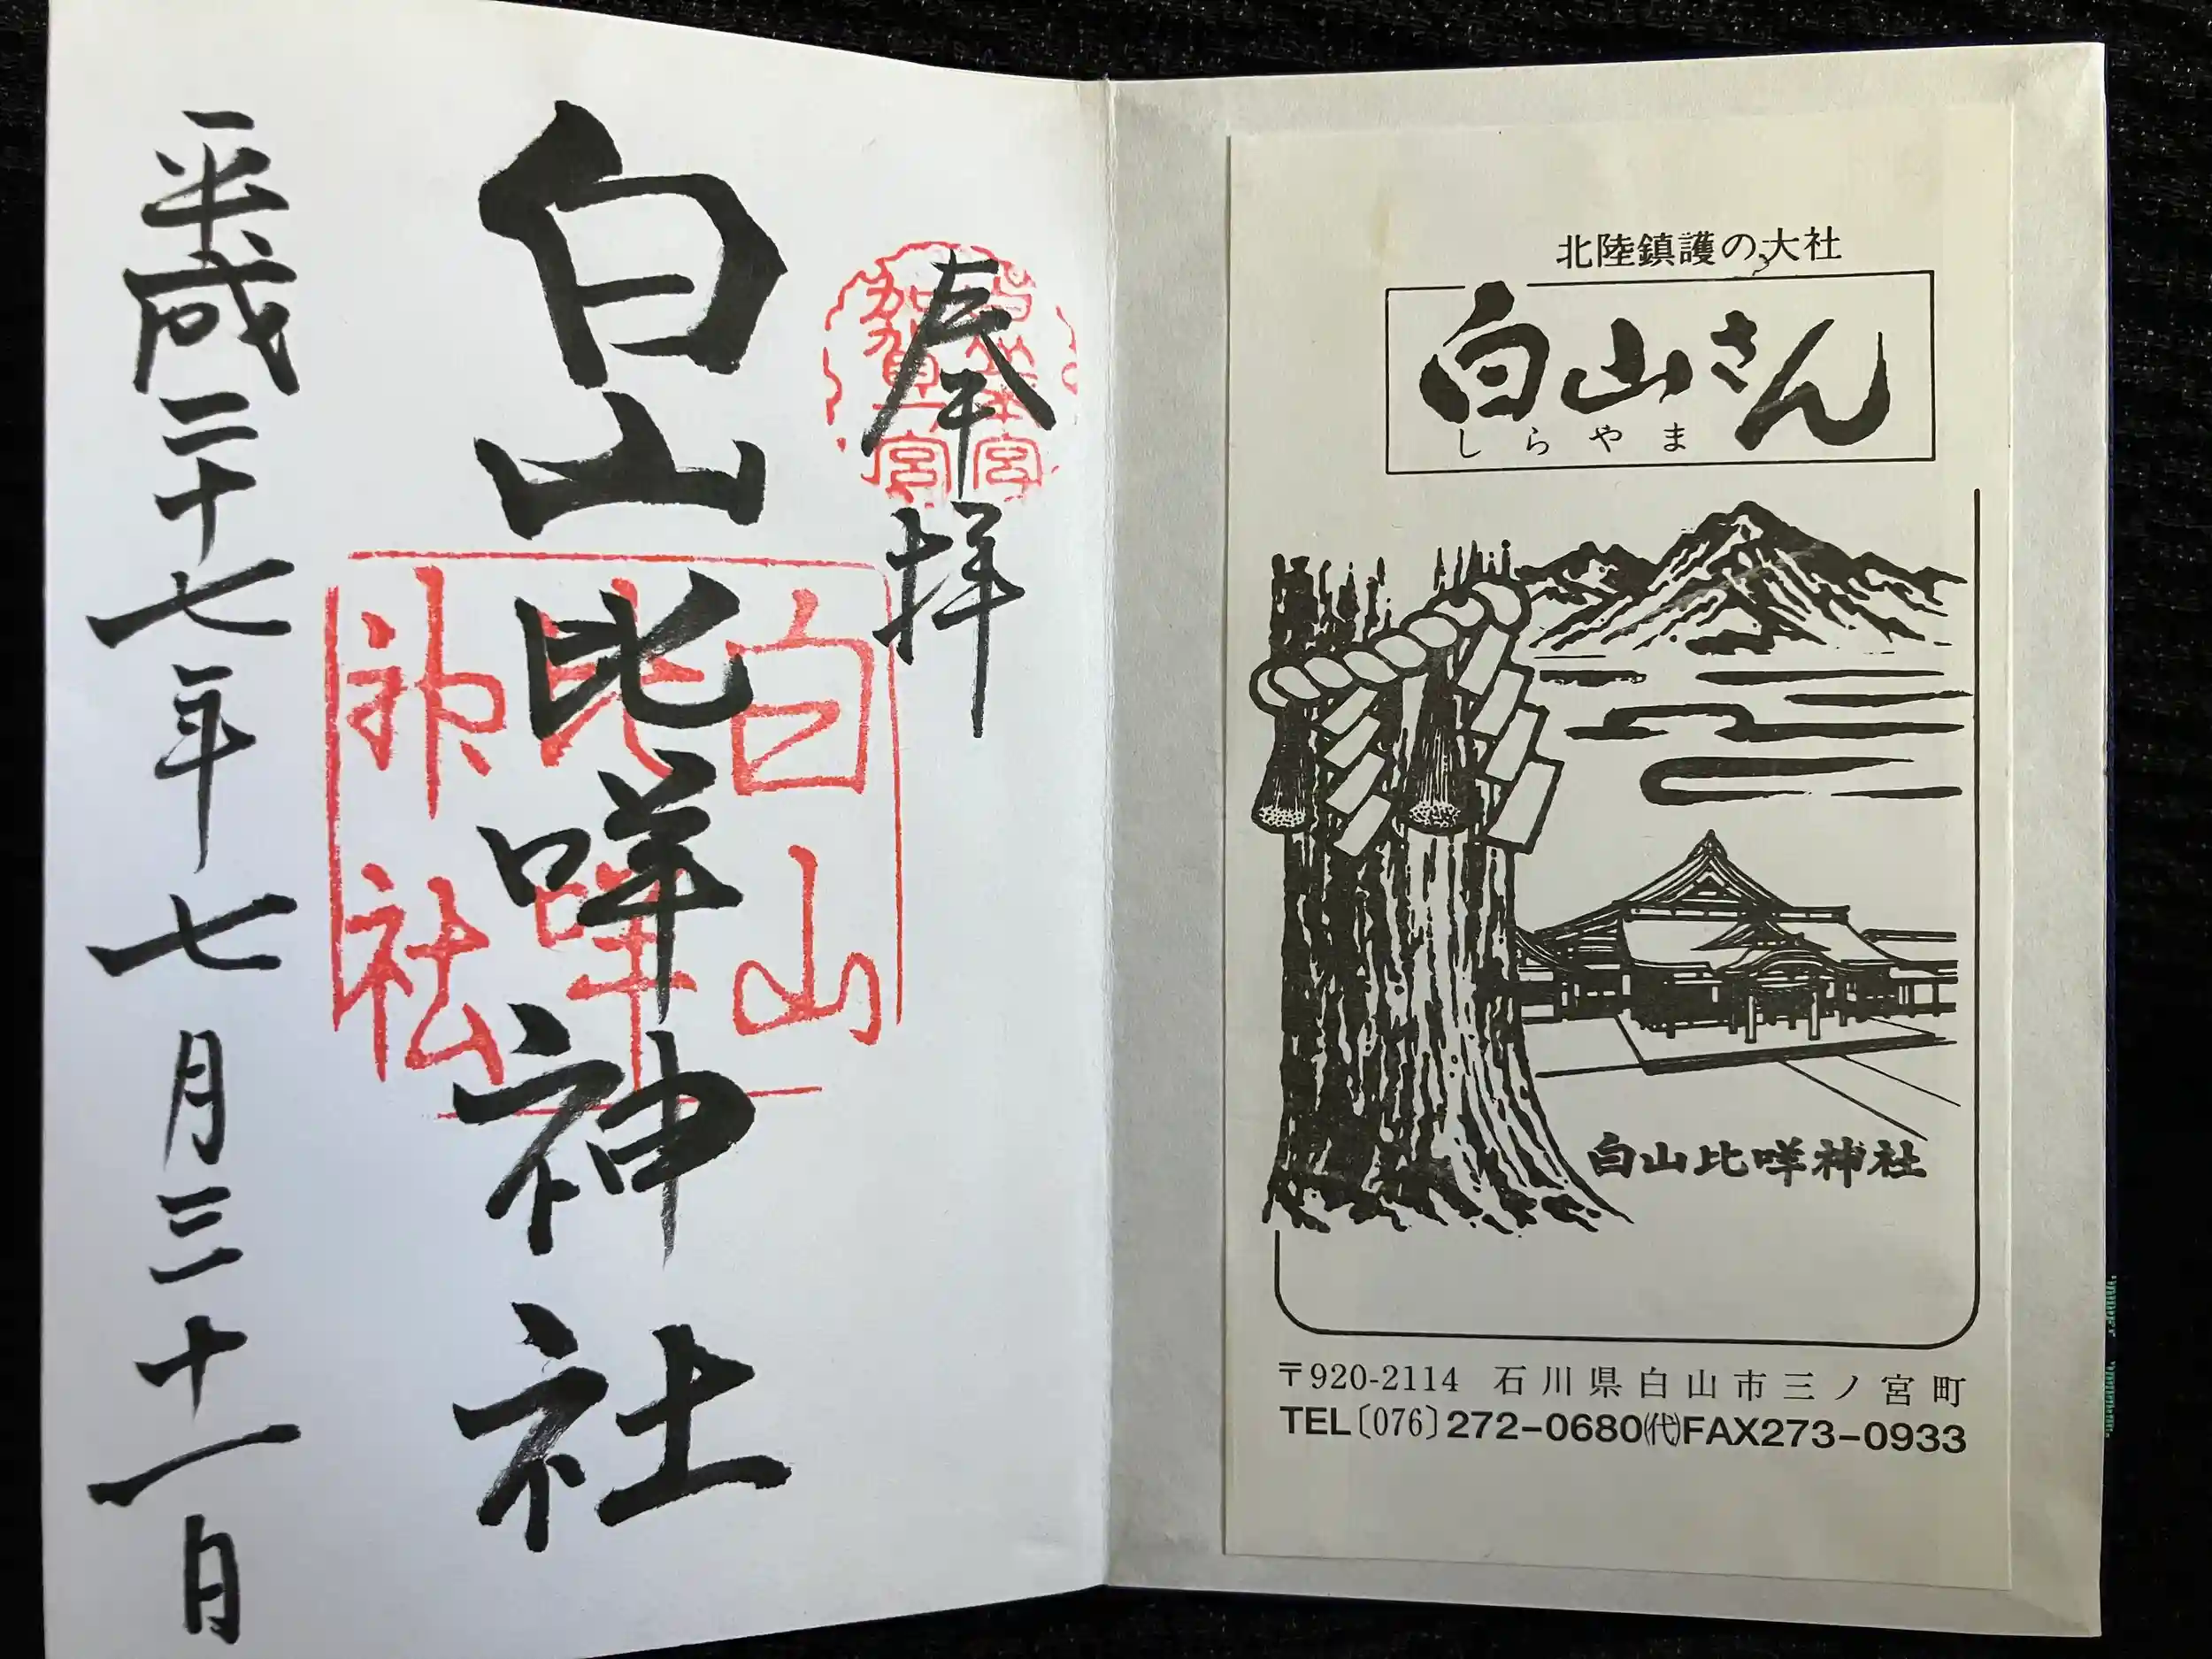 北陸鎮護の大社
白山さん
しらやま
白山比咩神社
〒920-2114 石川県白山市三ノ宮町
TEL〔076〕272-0680㈹FAX273-0933
奉拝
加賀一宮
白山比咩神社
白山
比咩
神社
平成二十七年七月三十一日